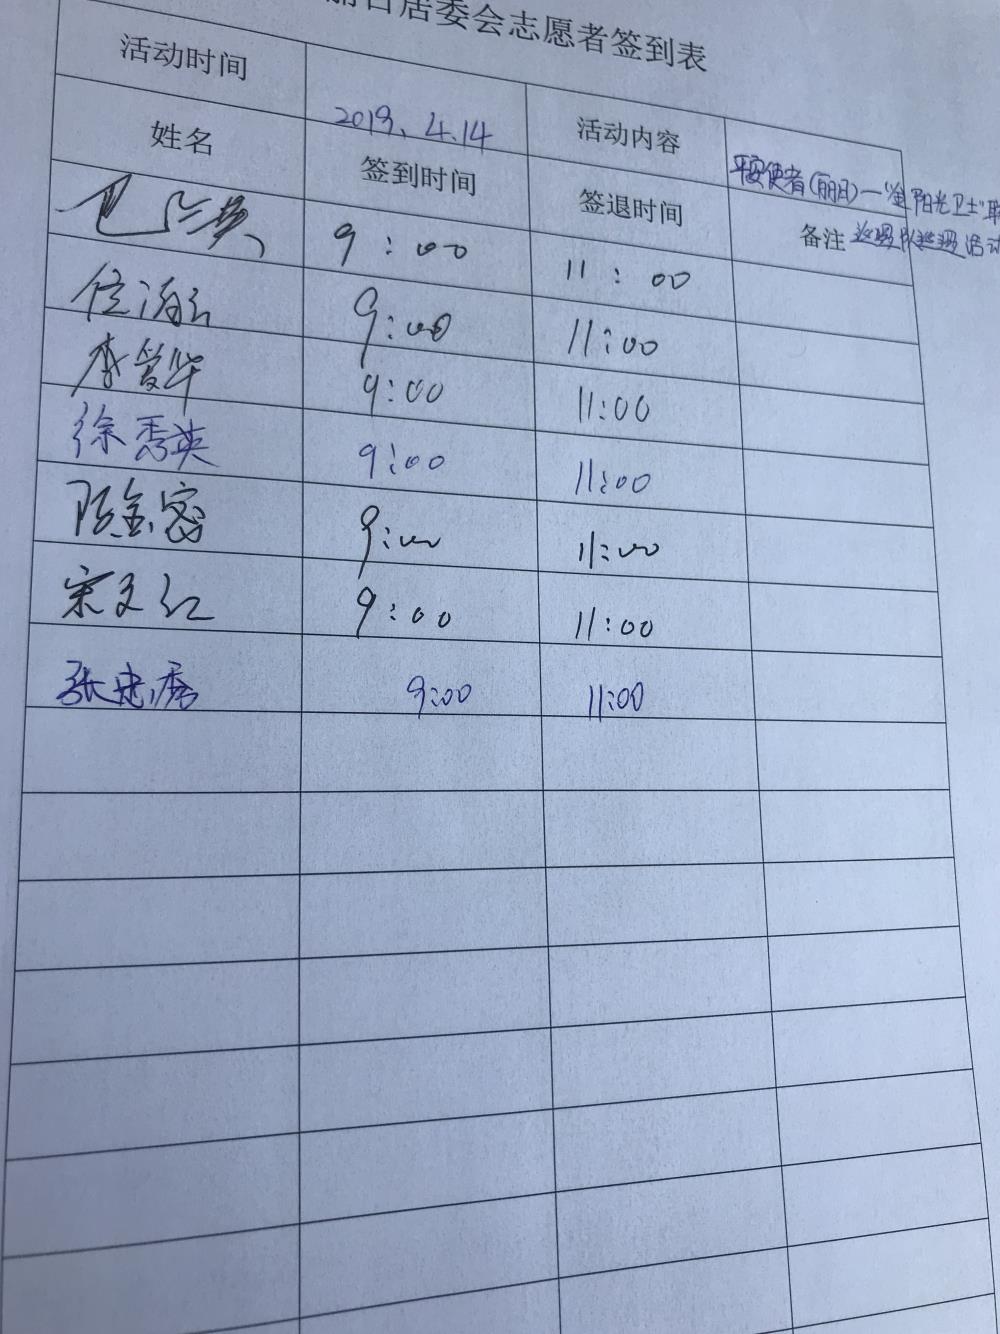 居委会志愿者签到表
活动时间 2019.4.14 活动内容 平安使者(丽日)—"金阳光卫士"联
姓名 签到时间 签退时间 备注 巡逻队巡逻活动
9:00 11:00
9:00 11:00
9:00 11:00
徐秀英 9:00 11:00
9:00 11:00
宋文红 9:00 11:00
张忠秀 9:00 11:00